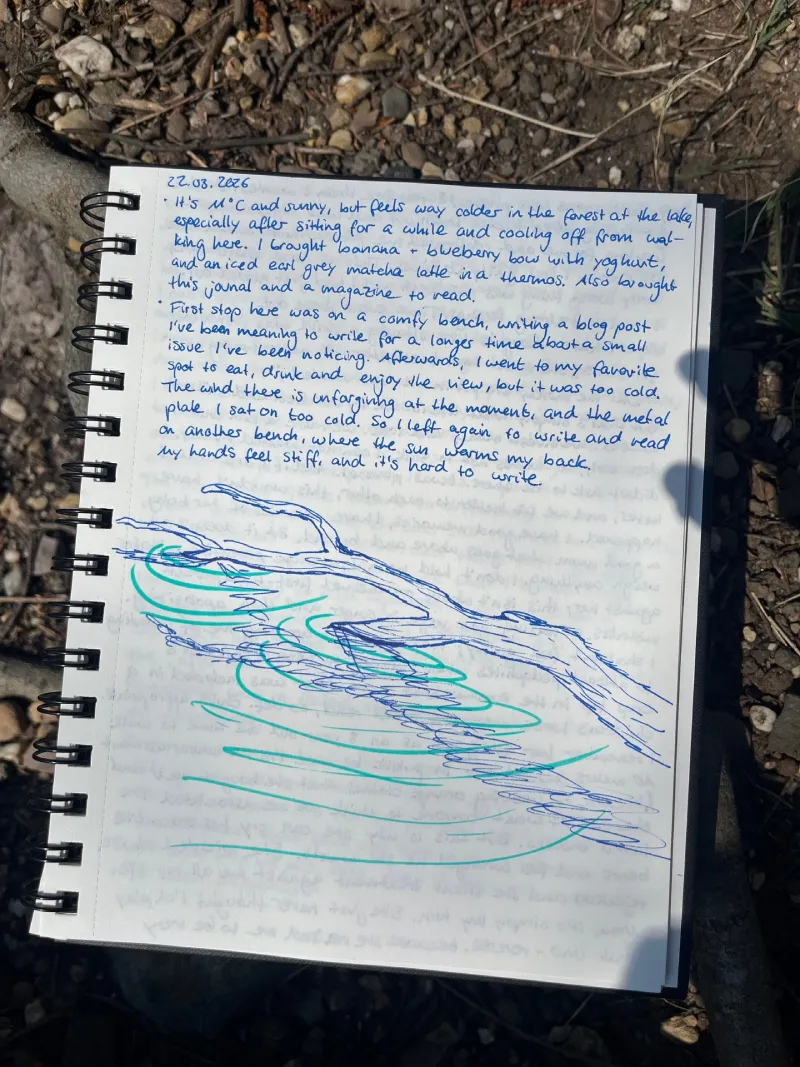 22.03.2026
· It's 11°C and sunny, but feels way colder in the forest at the lake,
especially after sitting for a while and cooling off from wal-
king here. I brought banana + blueberry bowl with yoghurt,
and an iced earl grey matcha latte in a thermos. Also brought
this journal and a magazine to read.
· First stop here was on a comfy bench, writing a blog post
I've been meaning to write for a longer time about a small
issue I've been noticing. Afterwards, I went to my favorite
spot to eat, drink and enjoy the view, but it was too cold.
The wind there is unforgiving at the moment, and the metal
plate I sat on too cold. So I left again to write and read
on another bench, where the sun warms my back.
My hands feel stiff, and it's hard to write.